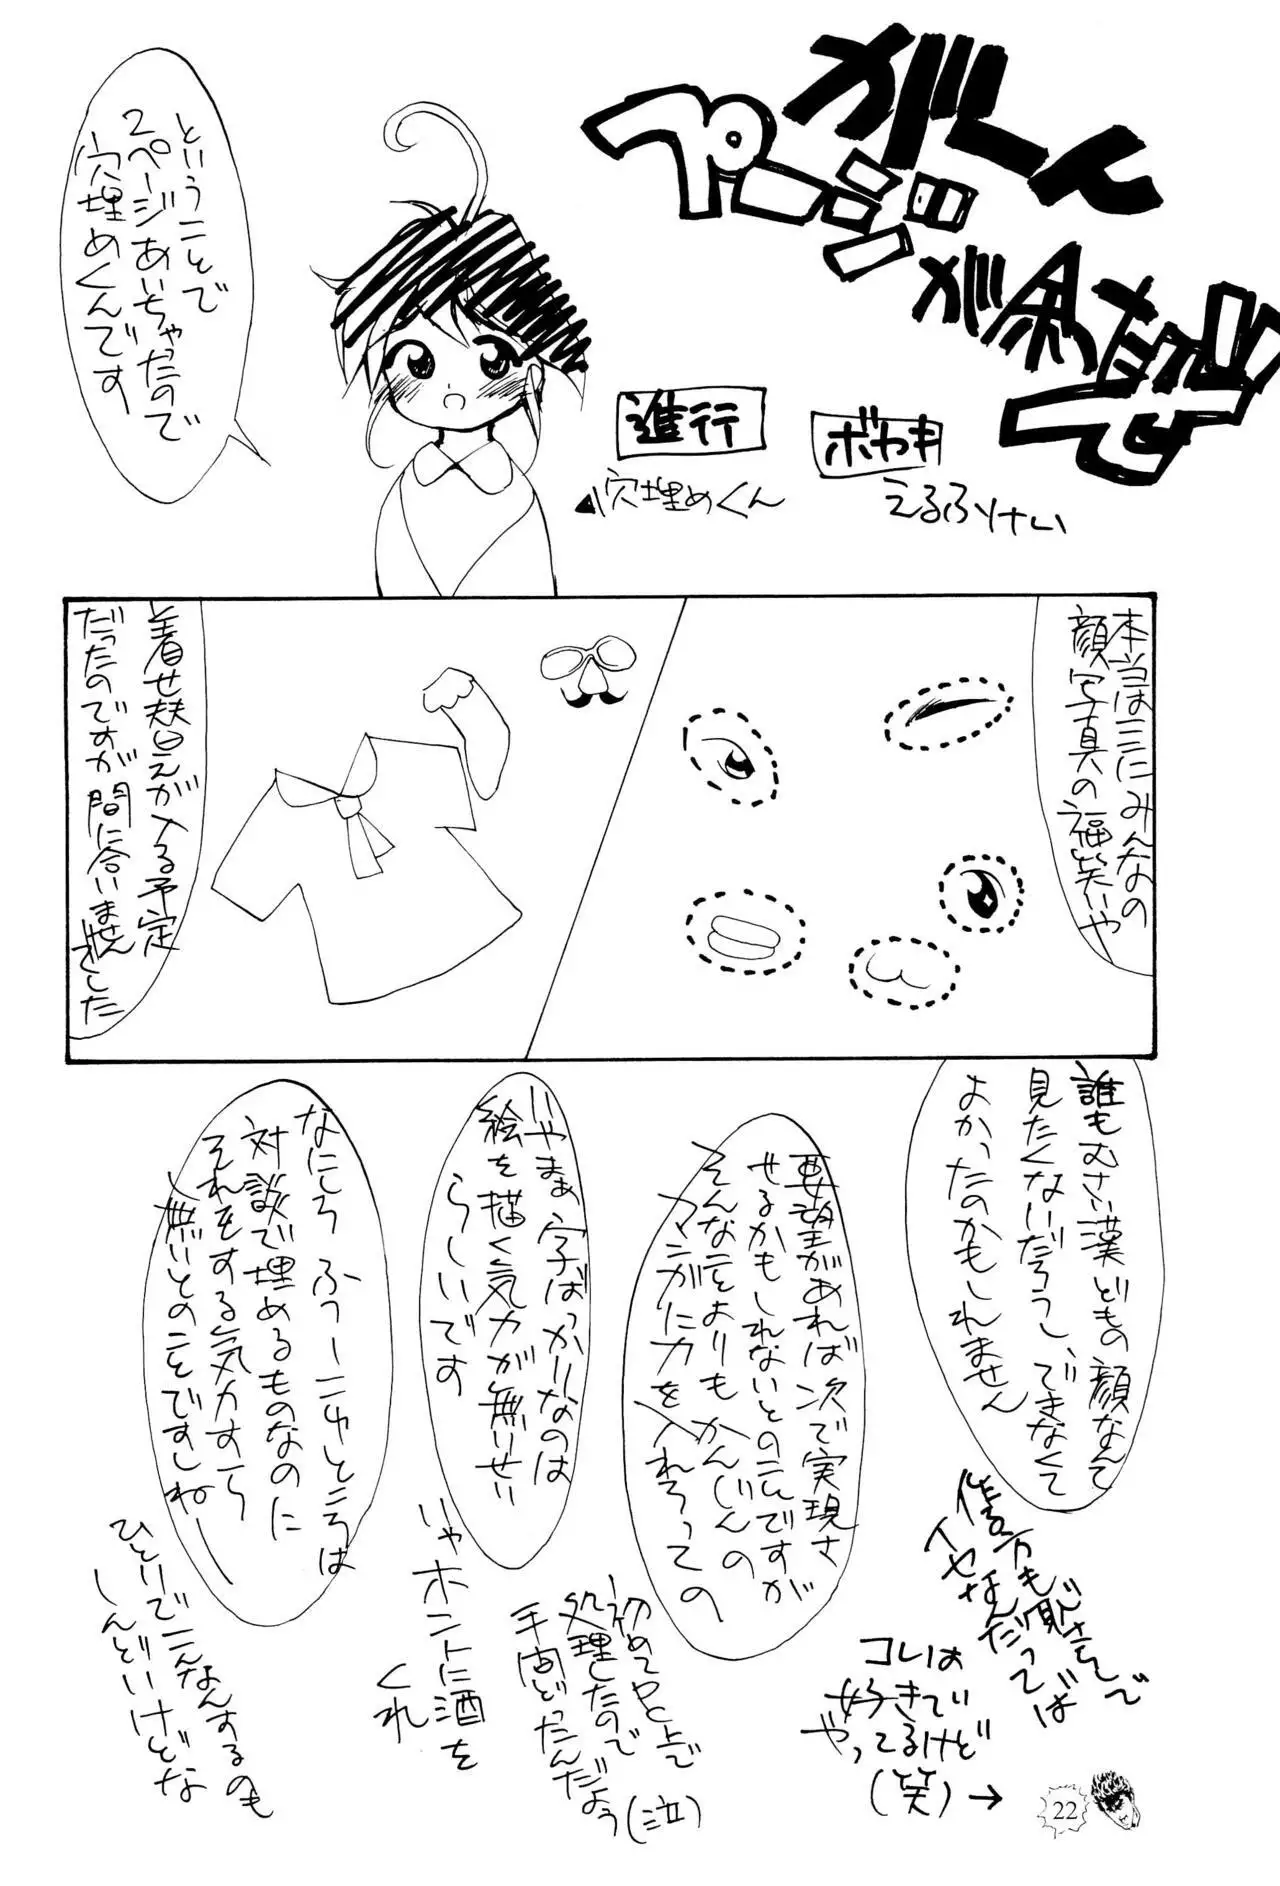 がーん
プージ
が余ったぜ!!
ボヤキ
えるふりけい
進行
穴埋めくん
ということで
2ページあいちゃったので
穴埋めくんです
本当はここにみんなの
顔写真の福笑いや
着せ替えが入る予定
だったのですが間に合いませんでした
誰もむさい漢どもの顔なんて
見たくないだろうし、でまなくて
よかったのかもしれません
要望があれば次で実現さ
せるかもしれないとのことですが
そんなことよりもかんじんの
マンガに力を入れろっての
いやまぁ、字ばっかりなのは
絵を描く気力が無いせい
らしいです
なにしろふつーこゆところは
対談で埋めるものなのに
それをする気力すら
無いとのことですしねー
作る方も恥さらしで
イヤなんだってば
コレは
好きでい
やってるけど
(笑)→
初めてPC上で
処理したので
手間どったんだよう
(泣)
いやホントに酒を
くれ
ひとりでこんなんするのも
しんどいけどな
22